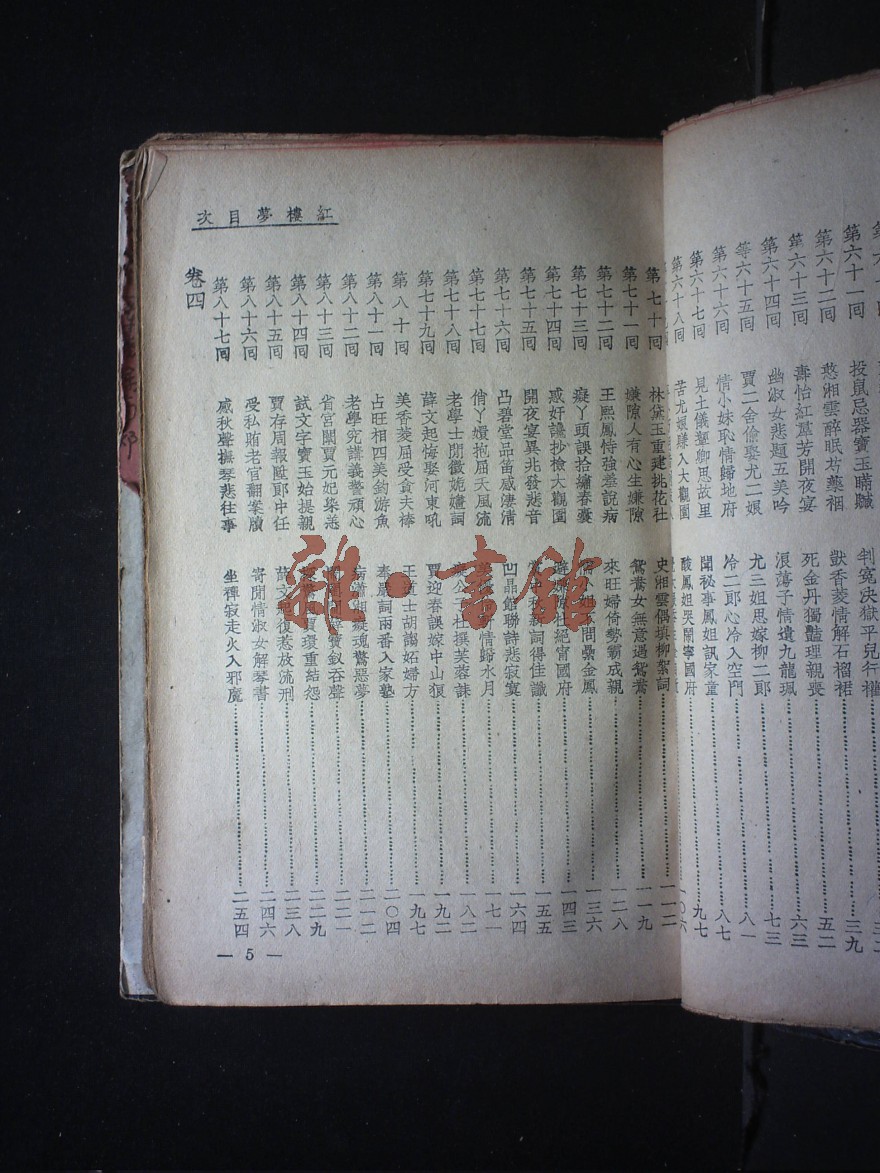 第六十一囘 投鼠忌器寶玉瞞贓 判冤決獄平兒行權
第六十二囘 憨湘雲醉眠芍藥裀 獃香菱情解石榴裙 三九
第六十三囘 壽怡紅羣芳開夜宴 死金丹獨豔理親喪 五二
第六十四囘 幽淑女悲題五美吟 浪蕩子情遺九龍珮 六三
等六十五囘 賈二舍偷娶尤二娘 尤三姐思嫁柳二郎 七三
第六十六囘 情小妹恥情歸地府 冷二郎心冷入空門 八一
第六十七囘 見土儀顰卿思故里 聞秘事鳳姐訊家童 八七
第六十八囘 苦尤娘賺入大觀園 酸鳳姐哭鬧寧國府 九七
一〇六
紅樓夢目次
第七十囘 林黛玉重建桃花社 史湘雲偶填柳絮詞 一一二
第七十一囘 嫌隙人有心生嫌隙 鴛鴦女無意遇鴛鴦 一一九
第七十二囘 王熙鳳恃強羞說病 來旺婦倚勢霸成親 一二八
第七十三囘 癡丫頭誤拾繡春囊 問纍金鳳 一三六
第七十四囘 惑奸讒抄檢大觀園 杜絕甯國府 一四三
第七十五囘 開夜宴異兆發悲音 新詞得佳讖 一五五
第七十六囘 凸碧堂品笛感凄清 凹晶館聯詩悲寂寞 一六四
第七十七囘 俏丫嬛抱屈夭風流 情歸水月 一七一
第七十八囘 老學士閒徵姽嫿詞 公子杜撰芙蓉誄 一八二
第七十九囘 薛文起悔娶河東吼 賈迎春誤嫁中山狼 一九二
第八十囘 美香菱屈受貪夫棒 王道士胡謅妬婦方 一九七
第八十一囘 占旺相四美釣游魚 奉嚴詞兩番入家塾 二〇四
第八十二囘 老學究講義警頑心 病瀟湘癡魂驚惡夢 二一二
第八十三囘 省宮闈賈元妃染恙 寶釵吞聲 二二一
第八十四囘 試文字寶玉始提親 環重結怨 二二九
第八十五囘 賈存周報陞郎中任 薛文起復惹放流刑 二三八
第八十六囘 受私賄老官翻案牘 寄閒情淑女解琴書 二四六
第八十七囘 感秋聲撫琴悲往事 坐禪寂走火入邪魔 二五四
卷四
— 5 —
雜·書館